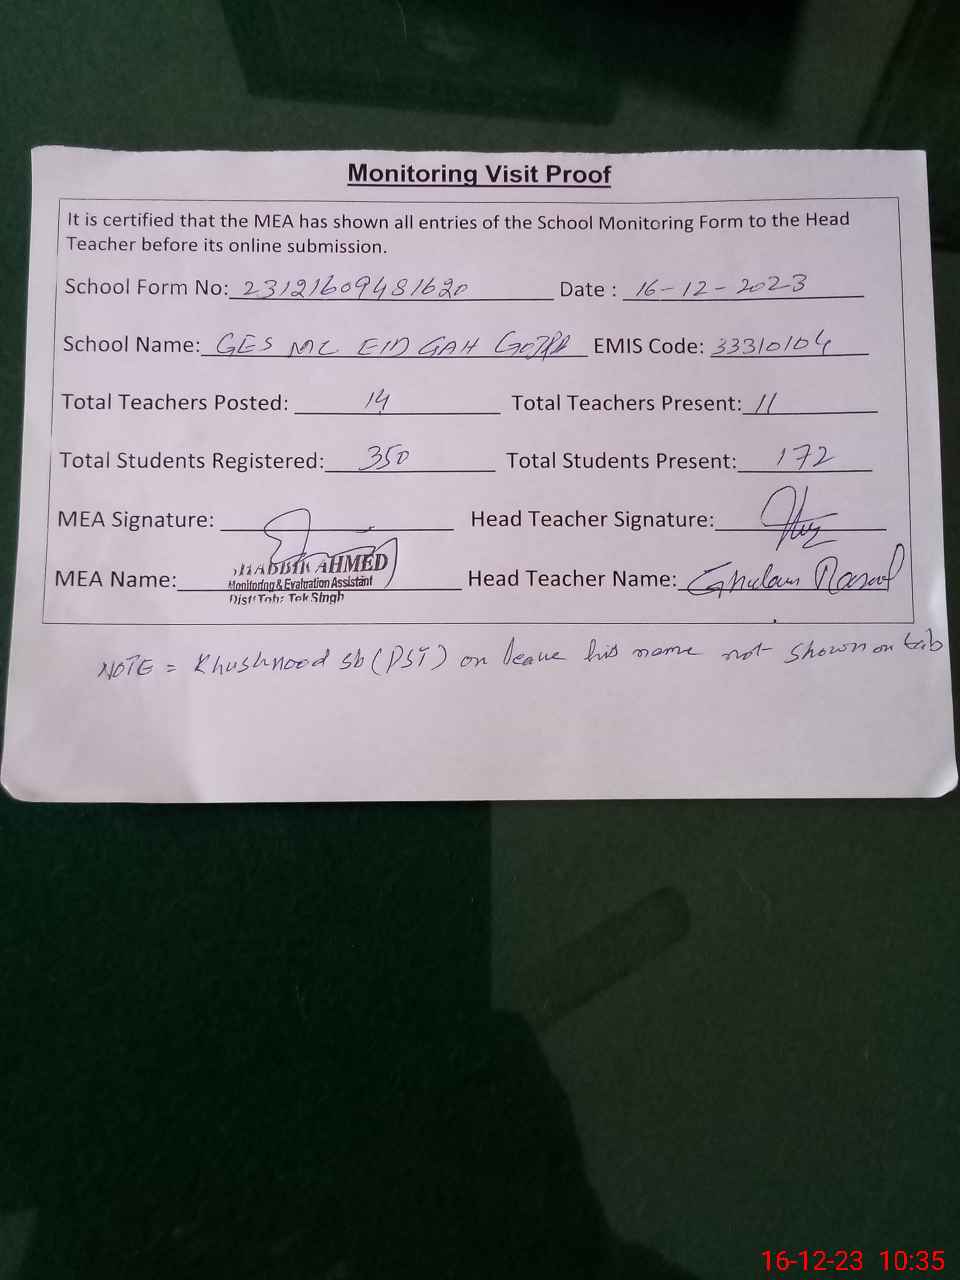 Monitoring Visit Proof
It is certified that the MEA has shown all entries of the School Monitoring Form to the Head
Teacher before its online submission.
School Form No: 23121609481620 Date : 16-12-2023
School Name: GES MC EID GAH GOJRA EMIS Code: 33310104
Total Teachers Posted: 14 Total Teachers Present: 11
Total Students Registered: 350 Total Students Present: 172
MEA Signature: Head Teacher Signature:
MEA Name: AHMED Head Teacher Name: Ghulam Rasool
Monitoring & Evaluation Assistant
Distt Toba Tek Singh
NOTE = Khushnood sb (PST) on leave his name not shown on tab
16-12-23 10:35